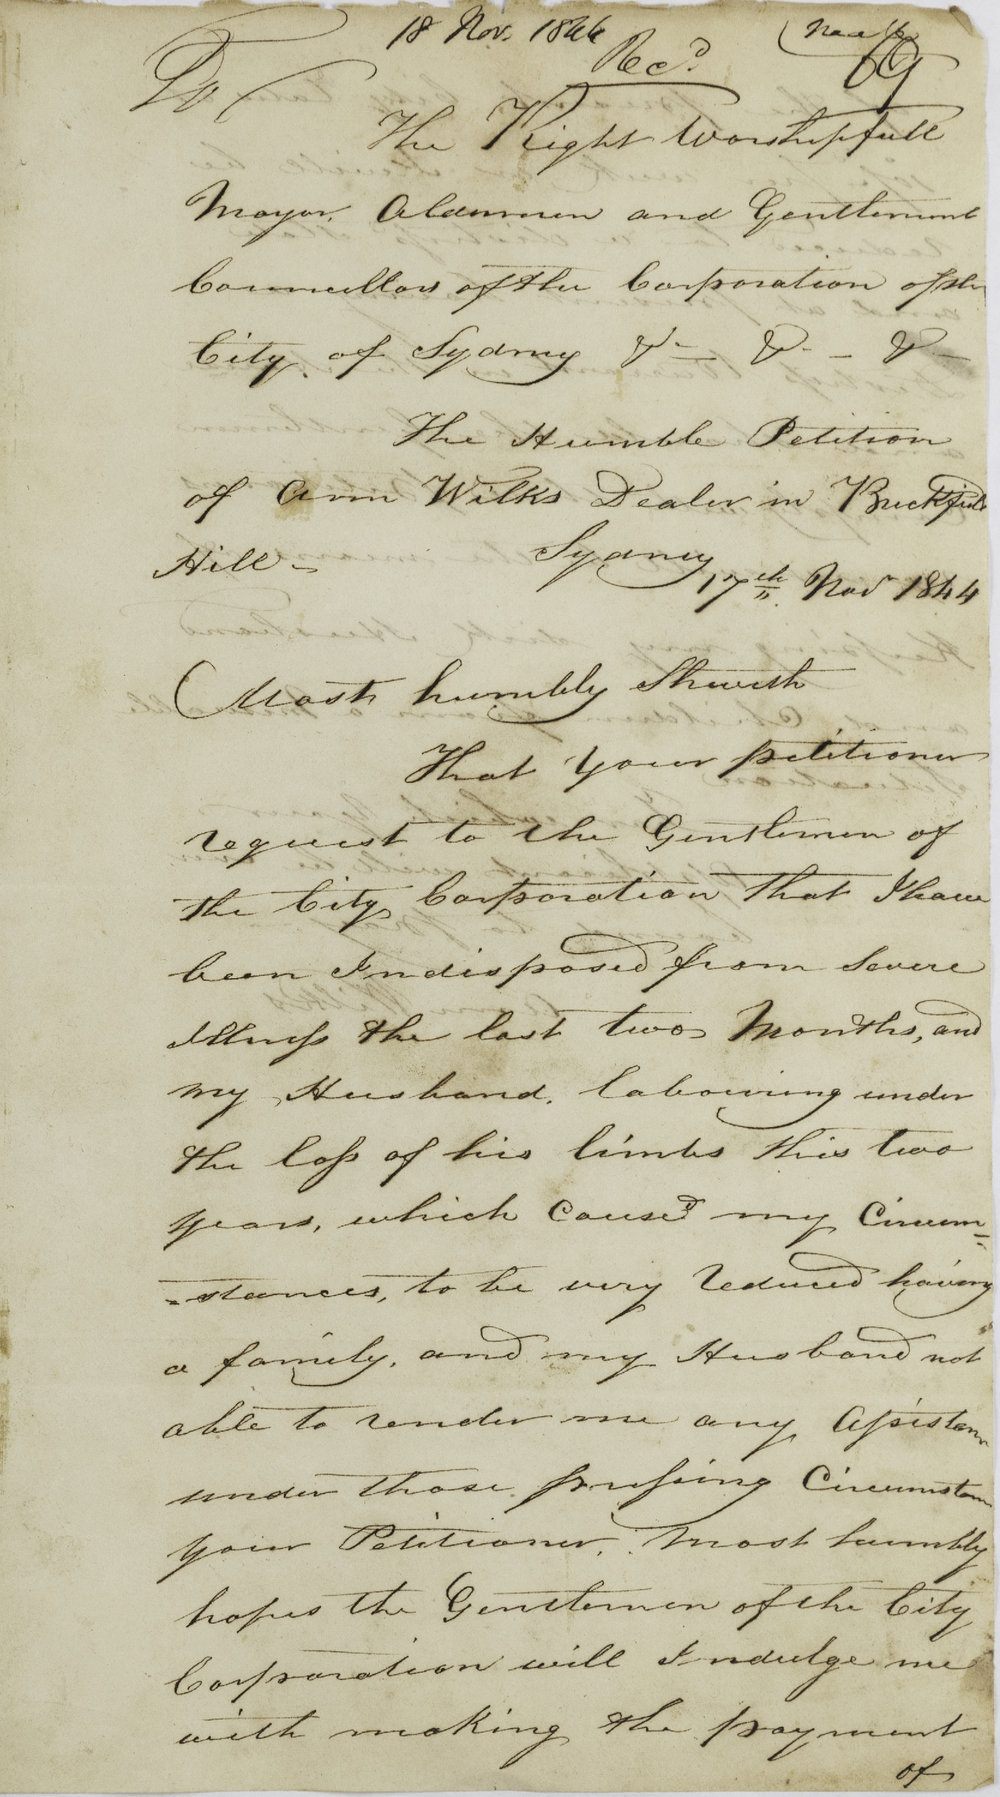 18 Nov. 1844
69
Recd.
To
The Right Worshipfull
Mayor, Aldermen and Gentlemen
Councellors of the Corporation of the
City of Sydney &c - &c - &c -
The Humble Petition
of Ann Wilks Dealer in Brickfield
Hill - Sydney
17th Novr 1844
Most humbly Sheweth
That your petitioner
request to the Gentlemen of
the City Corporation that I have
been Indisposed from Severe
Illness the last two Months, and
my Husband, labouring under
the loss of his limbs this two
years, which caused my Circum=
=stances, to be very reduced having
a family, and my Husband not
able to render me any Assistance
under those pressing Circumstances
your Petitioner, most humbly
hopes the Gentlemen of the City
Corporation will Indulge me
with making the payment
of